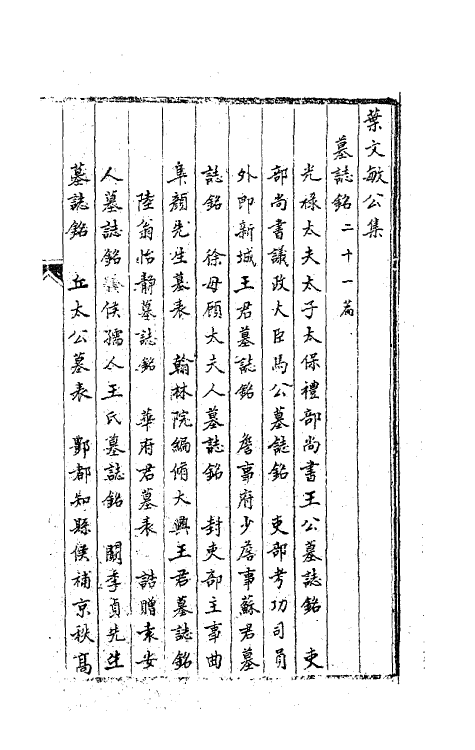 葉文敏公集
墓誌銘二十一篇
光祿太夫太子太保禮部尚書王公墓誌銘 吏
部尚書議政大臣馬公墓誌銘 吏部考功司員
外郎新城王君墓誌銘 詹事府少詹事蘇君墓
誌銘 徐母顧太夫人墓誌銘 封吏部主事曲
阜顏先生墓表 翰林院編脩大興王君墓誌銘
陸翁怡靜墓誌銘 華府君墓表 誥贈袁安
人墓誌銘 侯孺人王氏墓誌銘 闕季貞先生
墓誌銘 丘太公墓表 酆都知縣侯補京秩高